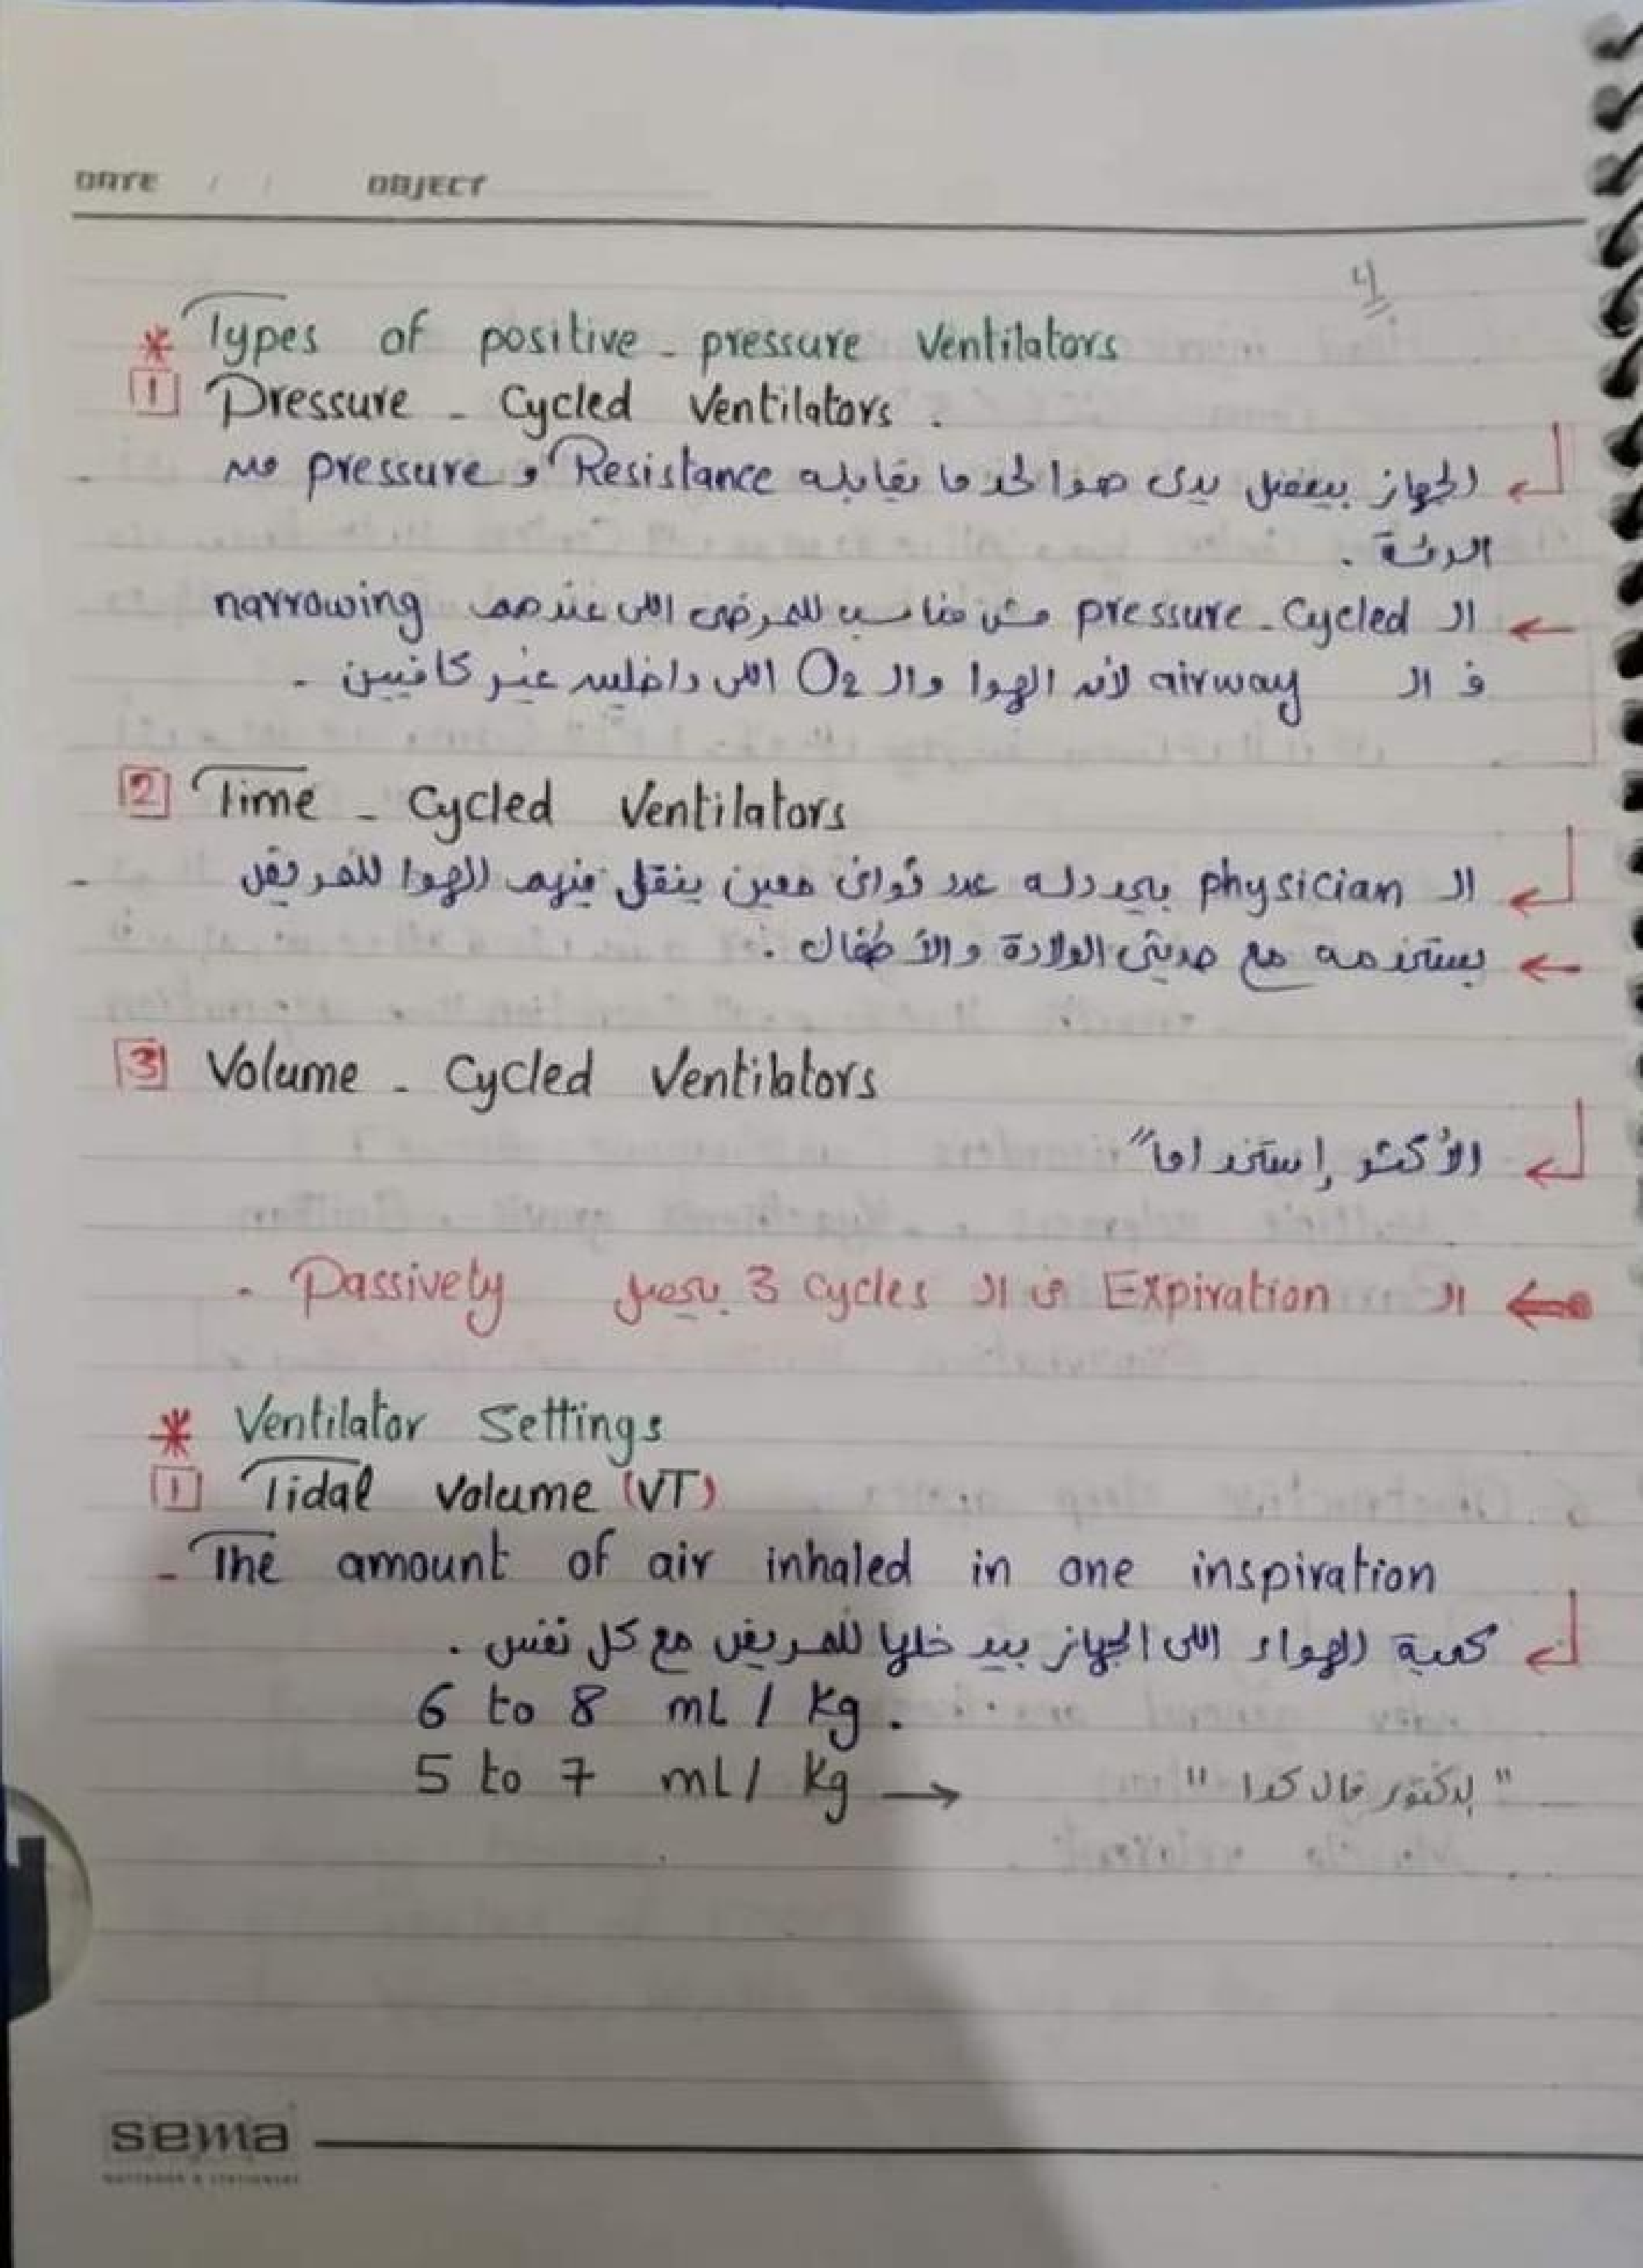 DATE / / OBJECT
4
* Types of positive - pressure Ventilators
1 Pressure - Cycled Ventilators .
الجهاز بيفضل يدى هوا لحد ما يقابله Resistance و pressure من
الرئة .
الـ pressure - Cycled مش مناسب للمرضى اللى عندهم narrowing
ف الـ airway لأن الهوا والـ O2 اللى داخلين غير كافيين .
2 Time - Cycled Ventilators
الـ physician بيحددله عدد ثوانى معين ينقل فيهم الهوا للمريض
بستخدمه مع حديثى الولادة والأطفال .
3 Volume - Cycled Ventilators
الأكثر إستخداماً
الـ Expiration فى الـ 3 cycles بيحصل Passively .
* Ventilator Settings
1 Tidal volume (VT)
- The amount of air inhaled in one inspiration
كمية الهواء اللى الجهاز بيدخلها للمريض مع كل نفس .
6 to 8 mL / Kg .
5 to 7 mL / Kg → " الدكتور قال كدا "
sema
NOTEBOOK & STATIONERY